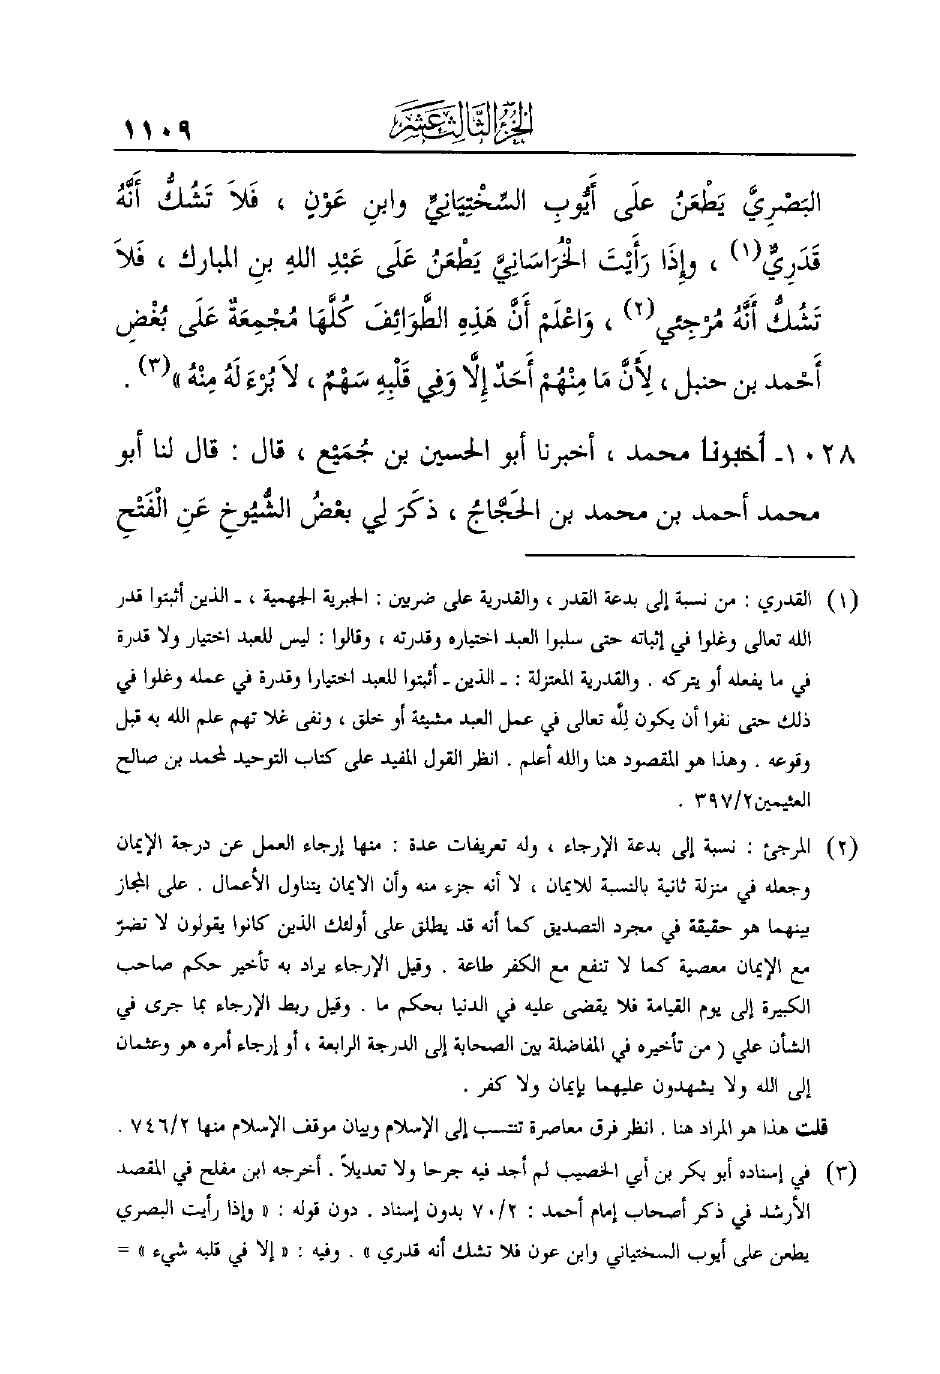 الجزء الثالث عشر ١١٠٩
البَصْرِيَّ يَطْعَنُ علَى أَيُّوبِ السِّخْتِيَانِيِّ وابنِ عَوْنٍ ، فَلاَ تَشُكُّ أَنَّهُ
قَدَرِيٌّ(١) ، وإِذَا رَأَيْتَ الخُرَاسَانِيَّ يَطْعَنُ عَلَى عَبْدِ اللهِ بنِ المبارك ، فَلاَ
تَشُكُّ أَنَّهُ مُرْجِئي(٢) ، وَاعْلَمْ أَنَّ هَذِهِ الطَّوَائِفَ كُلَّهَا مُجْمِعَةٌ عَلَى بُغْضِ
أَحْمد بن حنبل ، لِأَنَّ مَا مِنْهُمْ أَحَدٌ إِلَّا وَفِي قَلْبِهِ سَهْمٌ ، لاَ بُرْءَ لَهُ مِنْهُ »(٣) .
١٠٢٨- أخبرنا محمد ، أخبرنا أبو الحسين بن جُمَيْع ، قال : قال لنا أبو
محمد أحمد بن محمد بن الحَجَّاجُ ، ذكَرَ لِي بعْضُ الشُّيُوخِ عَنِ الْفَتْحِ
(١) القدري : من نسبة إلى بدعة القدر ، والقدرية على ضربين : الجبرية الجهمية ، ـ الذين أثبتوا قدر
الله تعالى وغلوا في إثباته حتى سلبوا العبد اختياره وقدرته ، وقالوا : ليس للعبد اختيار ولا قدرة
في ما يفعله أو يتركه . والقدرية المعتزلة : ـ الذين ـ أثبتوا للعبد اختيارا وقدرة في عمله وغلوا في
ذلك حتى نفوا أن يكون للّه تعالى في عمل العبد مشيئة أو خلق ، ونفى غلا تهم علم الله به قبل
وقوعه . وهذا هو المقصود هنا والله أعلم . انظر القول المفيد على كتاب التوحيد لمحمد بن صالح
العثيمين٣٩٧/٢ .
(٢) المرجئ : نسبة إلى بدعة الإرجاء ، وله تعريفات عدة : منها إرجاء العمل عن درجة الإيمان
وجعله في منزلة ثانية بالنسبة للايمان ، لا أنه جزء منه وأن الايمان يتناول الأعمال . على المجاز
بينهما هو حقيقة في مجرد التصديق كما أنه قد يطلق على أولئك الذين كانوا يقولون لا تضرّ
مع الإيمان معصية كما لا تنفع مع الكفر طاعة . وقيل الإرجاء يراد به تأخير حكم صاحب
الكبيرة إلى يوم القيامة فلا يقضى عليه في الدنيا بحكم ما . وقيل ربط الإرجاء بما جرى في
الشأن علي ( من تأخيره في المفاضلة بين الصحابة إلى الدرجة الرابعة ، أو إرجاء أمره هو وعثمان
إلى الله ولا يشهدون عليهما بإيمان ولا كفر .
قلت هذا هو المراد هنا . انظر فرق معاصرة تنتسب إلى الإسلام وبيان موقف الإسلام منها ٧٤٦/٢ .
(٣) في إسناده أبو بكر بن أبي الخصيب لم أجد فيه جرحا ولا تعديلاً . أخرجه ابن مفلح في المقصد
الأرشد في ذكر أصحاب إمام أحمد : ٧٠/٢ بدون إسناد . دون قوله : « وإذا رأيت البصري
يطعن على أيوب السختياني وابن عون فلا تشك أنه قدري » . وفيه : « إلا في قلبه شيء » =